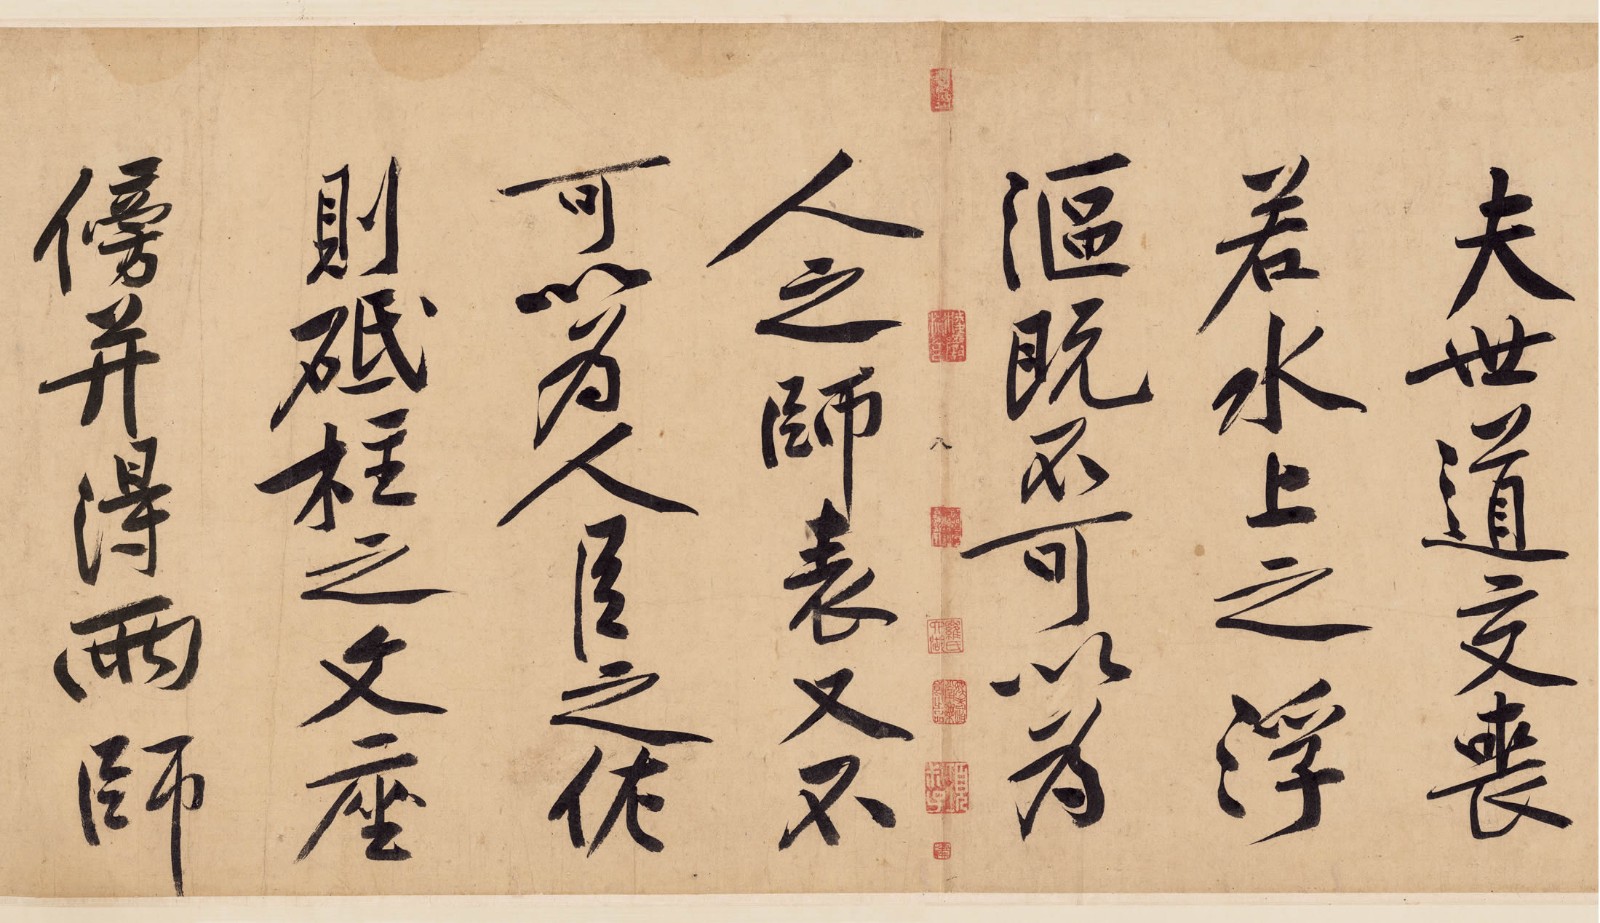 夫世道交喪
若水上之浮
漚既不可以為
人之師表又不
可以為人臣之佐
則砥柱之文座
傍并得兩師